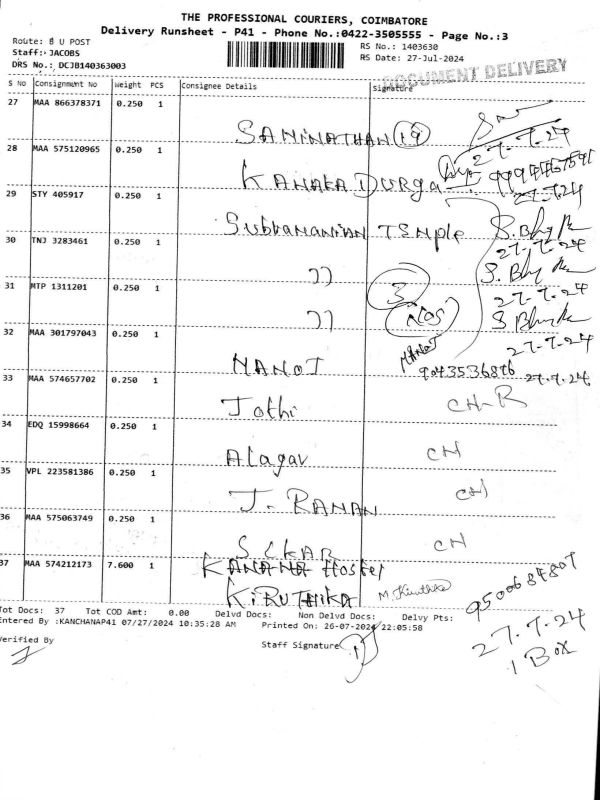 THE PROFESSIONAL COURIERS, COIMBATORE
Delivery Runsheet - P41 - Phone No.:0422-3505555 - Page No.:3
Route: 8 U POST
RS No.: 1403630
Staff: JACOBS
RS Date: 27-Jul-2024
DRS No.: DCJB140363003
DOCUMENT DELIVERY
S No Consignment No Weight PCS Consignee Details Signature
27 MAA 866378371 0.250 1
SANINATHAN 19
27-7-24
28 MAA 575120965 0.250 1
KANAKA DURGA
27.7.24
29 STY 405917 0.250 1
Subramanian Temple
27-7-24
30 TNJ 3283461 0.250 1
"
27-7-24
31 MTP 1311201 0.250 1
3
" NOS
27-7-24
32 MAA 301797043 0.250 1
MANOJ MANOJ
9043536876 27-7-24
33 MAA 574657702 0.250 1
Jothi CH-R
34 EDQ 15998664 0.250 1
Alagar CH
35 VPL 223581386 0.250 1
J. RAMAN CH
36 MAA 575063749 0.250 1
SEKAR CH
37 MAA 574212173 7.600 1
KANANA Hostel
KIRUTHIKA M. Kiruthika
9500684807
27-7-24
1 Box
Tot Docs: 37 Tot COD Amt: 0.00 Delvd Docs: Non Delvd Docs: Delvy Pts:
Entered By :KANCHANAP41 07/27/2024 10:35:28 AM Printed On: 26-07-2024 22:05:58
Verified By
Staff Signature